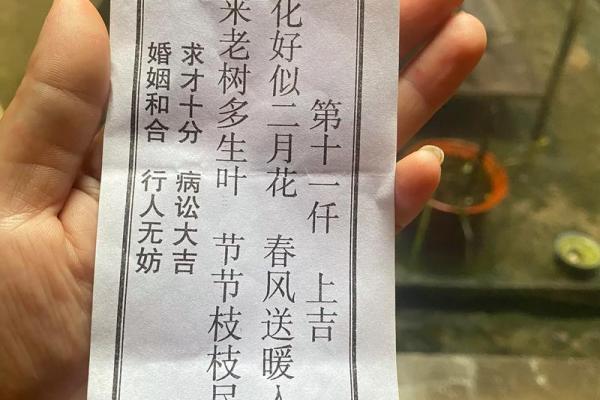 第十一仟 上吉
化好似二月花 春风送暖
老树多生叶 节节枝枝
求才十分 病讼大吉
婚姻和合 行人无妨